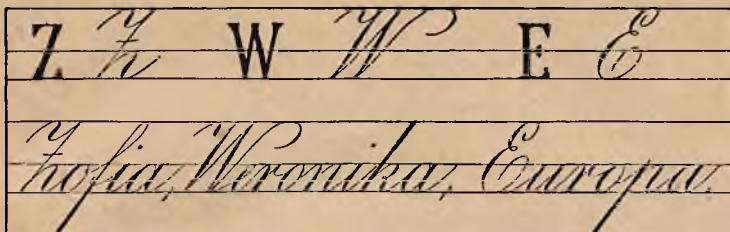 Z Z W W E E
Zofia, Weronika, Europa.